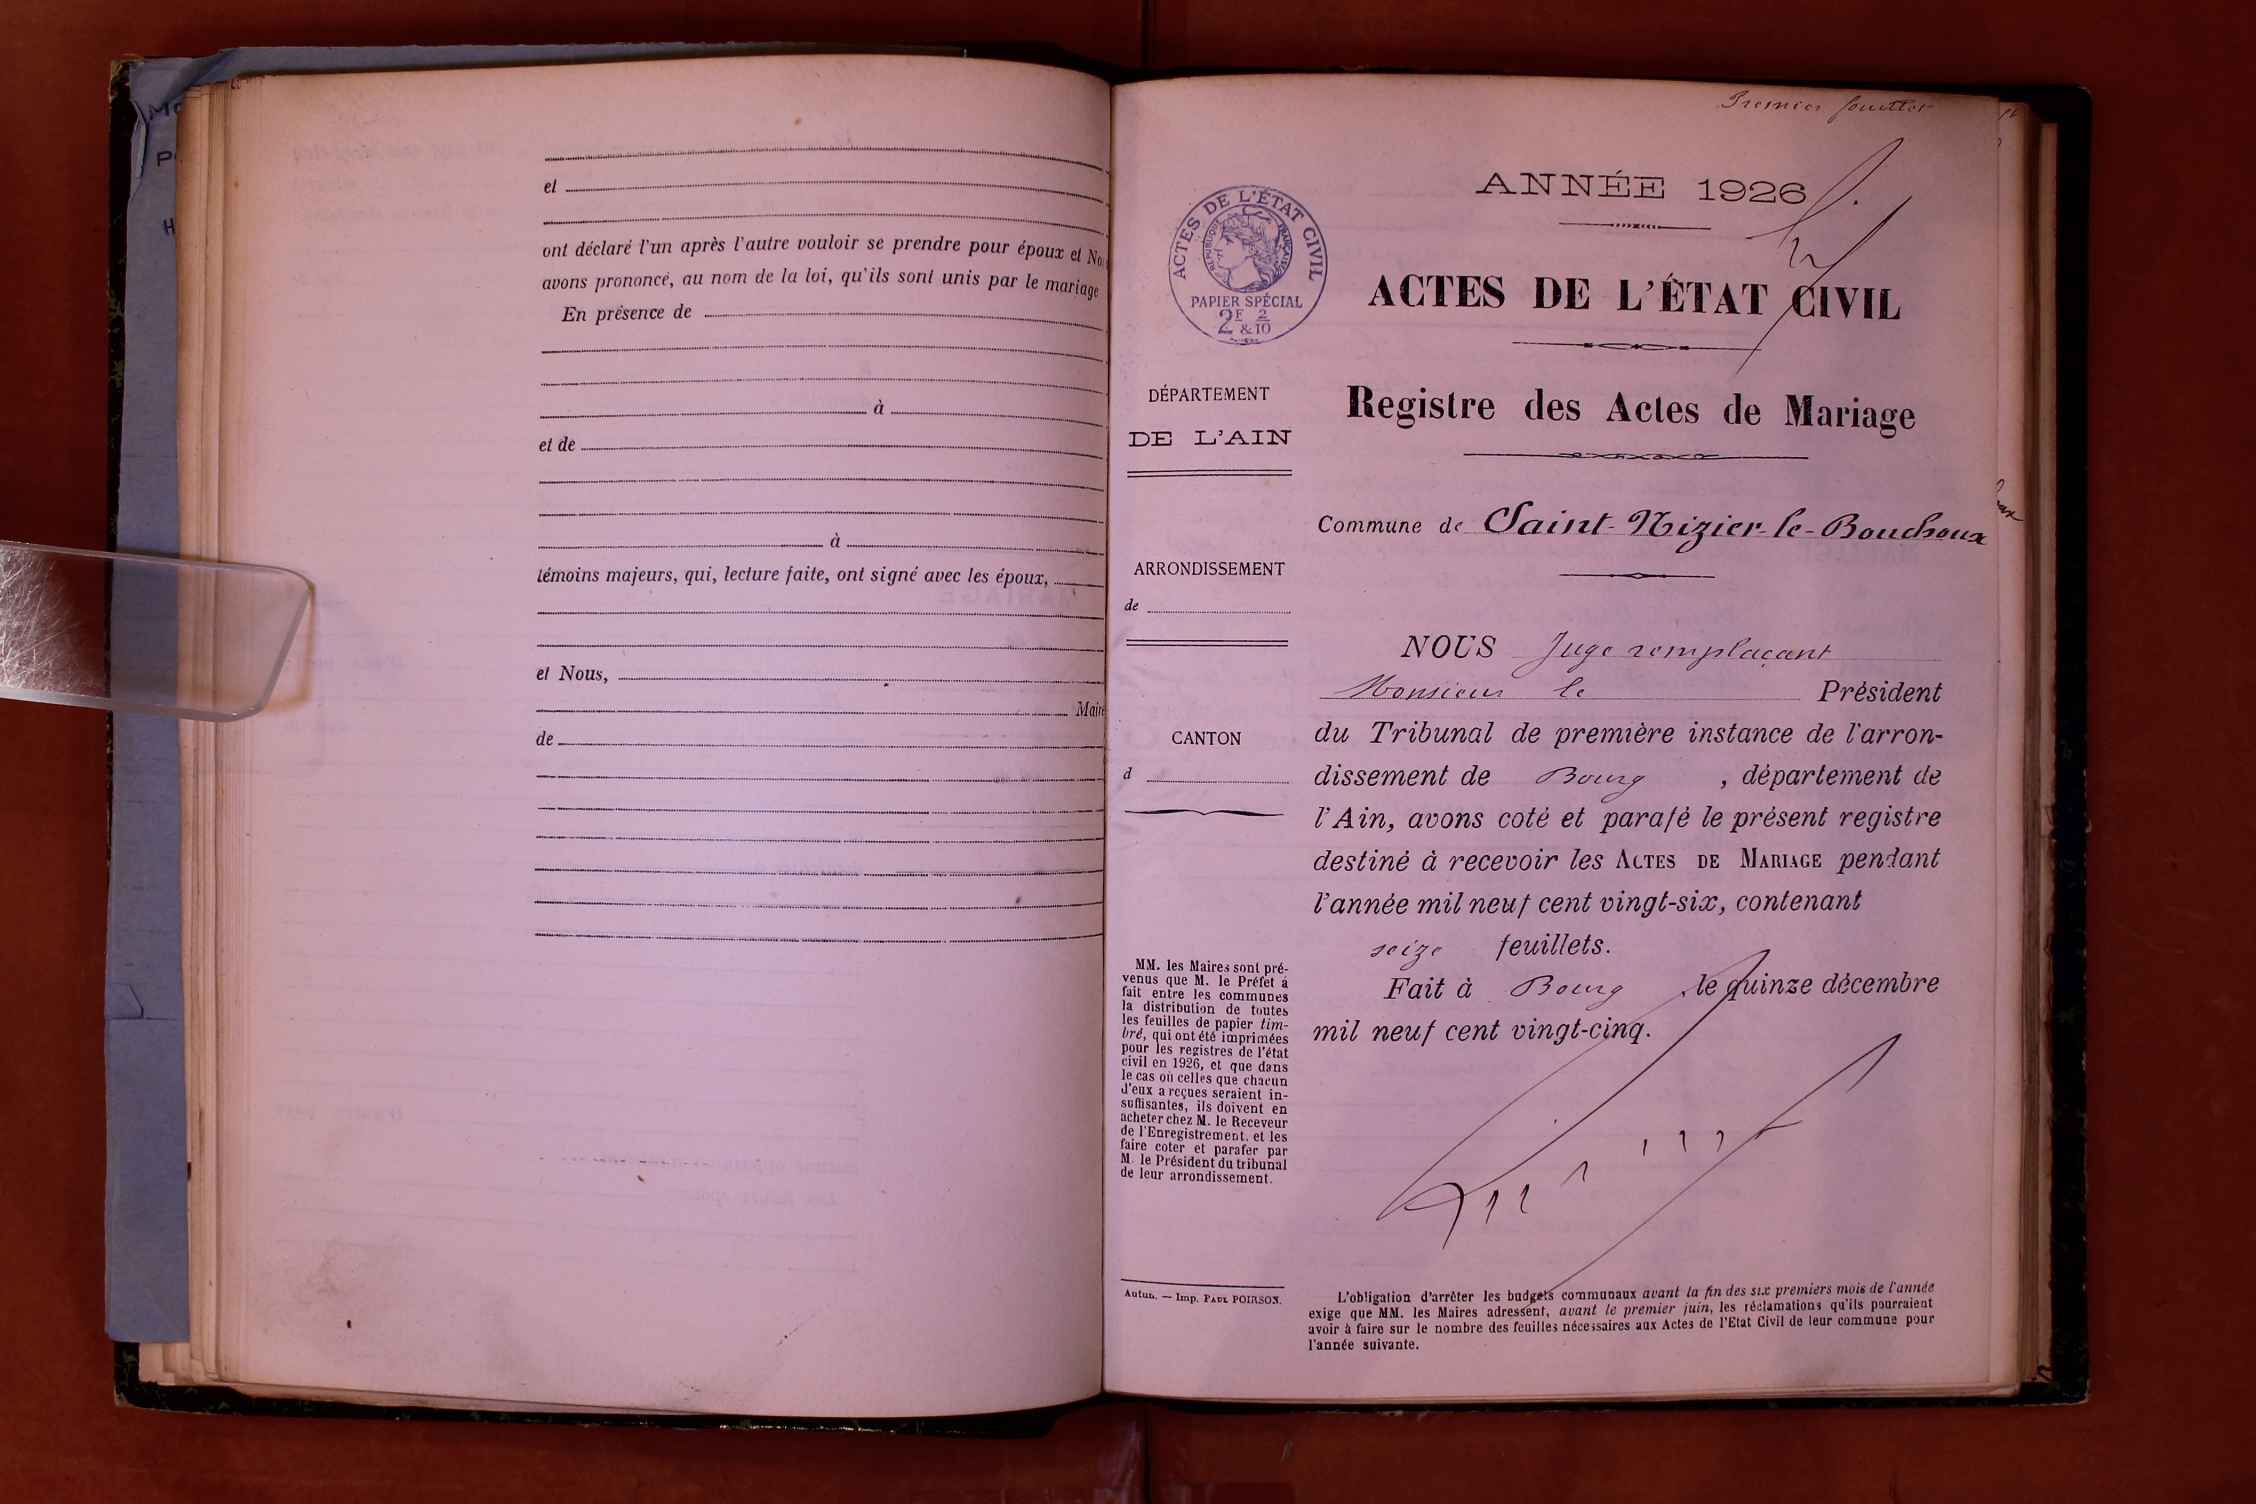 et
ont déclaré l'un après l'autre vouloir se prendre pour époux et
avons prononcé, au nom de la loi, qu'ils sont unis par le mariage
En présence de
à
et de
à
témoins majeurs, qui, lecture faite, ont signé avec les époux,
et Nous,
Maire
de
Premier feuillet
ANNÉE 1926
ACTES DE L'ÉTAT CIVIL
RÉPUBLIQUE FRANÇAISE
PAPIER SPÉCIAL
2F 2
& 10
ACTES DE L'ÉTAT CIVIL
Registre des Actes de Mariage
DÉPARTEMENT
DE L'AIN
Commune de Saint-Nizier-le-Bouchoux
ARRONDISSEMENT
de
CANTON
d
NOUS Juge remplaçant
Monsieur le Président
du Tribunal de première instance de l'arron-
dissement de Bourg, département de
l'Ain, avons coté et parafé le présent registre
destiné à recevoir les ACTES DE MARIAGE pendant
l'année mil neuf cent vingt-six, contenant
seize feuillets.
Fait à Bourg, le quinze décembre
mil neuf cent vingt-cinq.
MM. les Maires sont pré-
venus que M. le Préfet a
fait entre les communes
la distribution de toutes
les feuilles de papier tim-
bré, qui ont été imprimées
pour les registres de l'état
civil en 1926, et que dans
le cas où celles que chacun
d'eux a reçues seraient in-
suffisantes, ils doivent en
acheter chez M. le Receveur
de l'Enregistrement, et les
faire coter et parafer par
M. le Président du tribunal
de leur arrondissement.
Autun. — Imp. PAUL POIRSON.
L'obligation d'arrêter les budgets communaux avant la fin des six premiers mois de l'année
exige que MM. les Maires adressent, avant le premier juin, les réclamations qu'ils pourraient
avoir à faire sur le nombre des feuilles nécessaires aux Actes de l'Etat Civil de leur commune pour
l'année suivante.